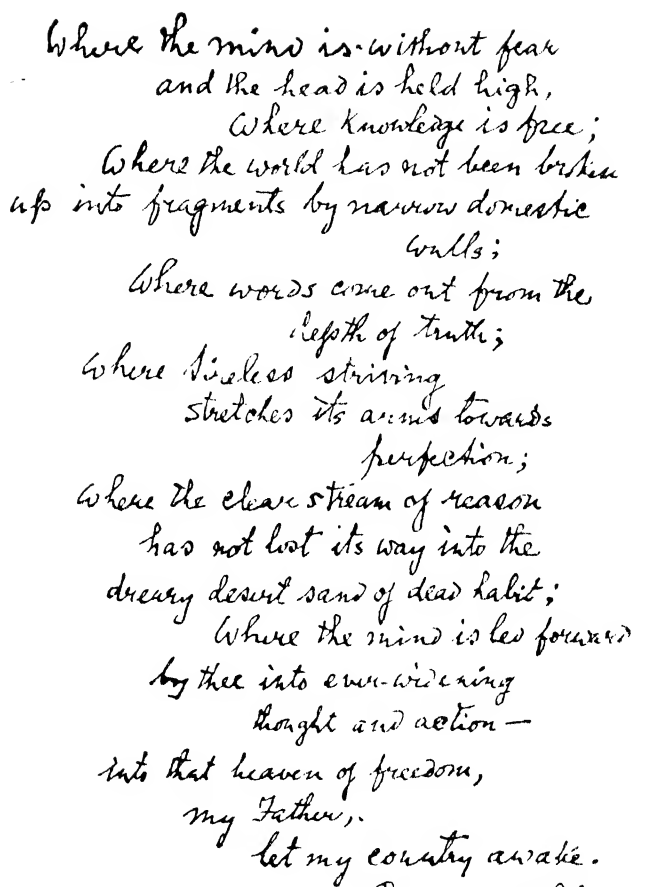 Where the mind is without fear
and the head is held high,
Where Knowledge is free;
Where the world has not been broken
up into fragments by narrow domestic
walls;
Where words come out from the
depth of truth;
Where tireless striving
stretches its arms towards
perfection;
Where the clear stream of reason
has not lost its way into the
dreary desert sand of dead habit;
Where the mind is led forward
by thee into ever-widening
thought and action—
into that heaven of freedom,
my Father,
let my country awake.